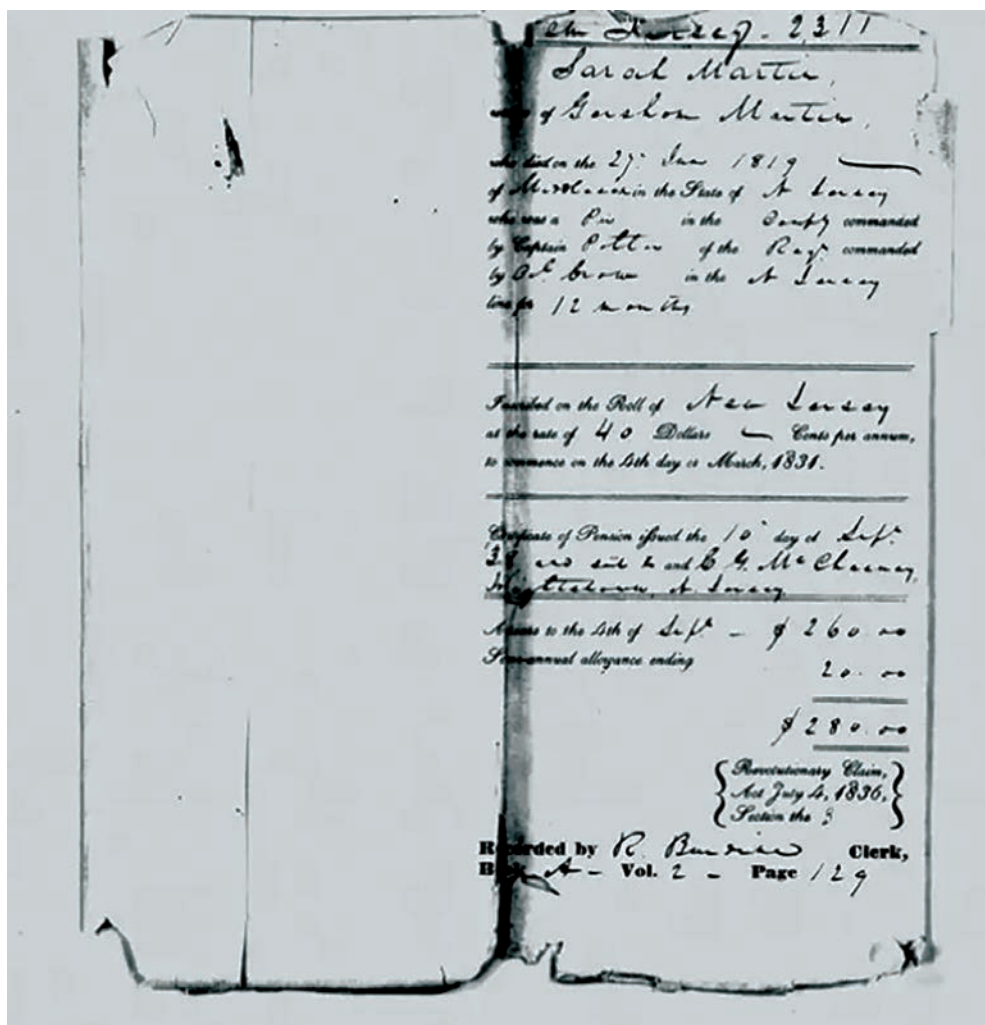 Jersey - 2311
Sarah Martin,
of Gershom Martin,
who died on the 27. 1819
of in the State of N Jersey
who was a Pri in the Compy commanded
by Captain Potter of the Regt commanded
by Col. Crow in the N Jersey
line for 12 months
Inscribed on the Roll of New Jersey
at the rate of 40 Dollars Cents per annum,
to commence on the 4th day of March, 1831.
Certificate of Pension issued the 10 day of Sept
38 and sent to and C G. McChesney,
Hightstown, N. Jersey
Arrears to the 4th of Sept - $260.00
Semi-annual allowance ending
20.00
$280.00
Revolutionary Claim,
Act July 4, 1836,
Section the 3
Recorded by R. Clerk,
Book A - Vol. 2 - Page 129